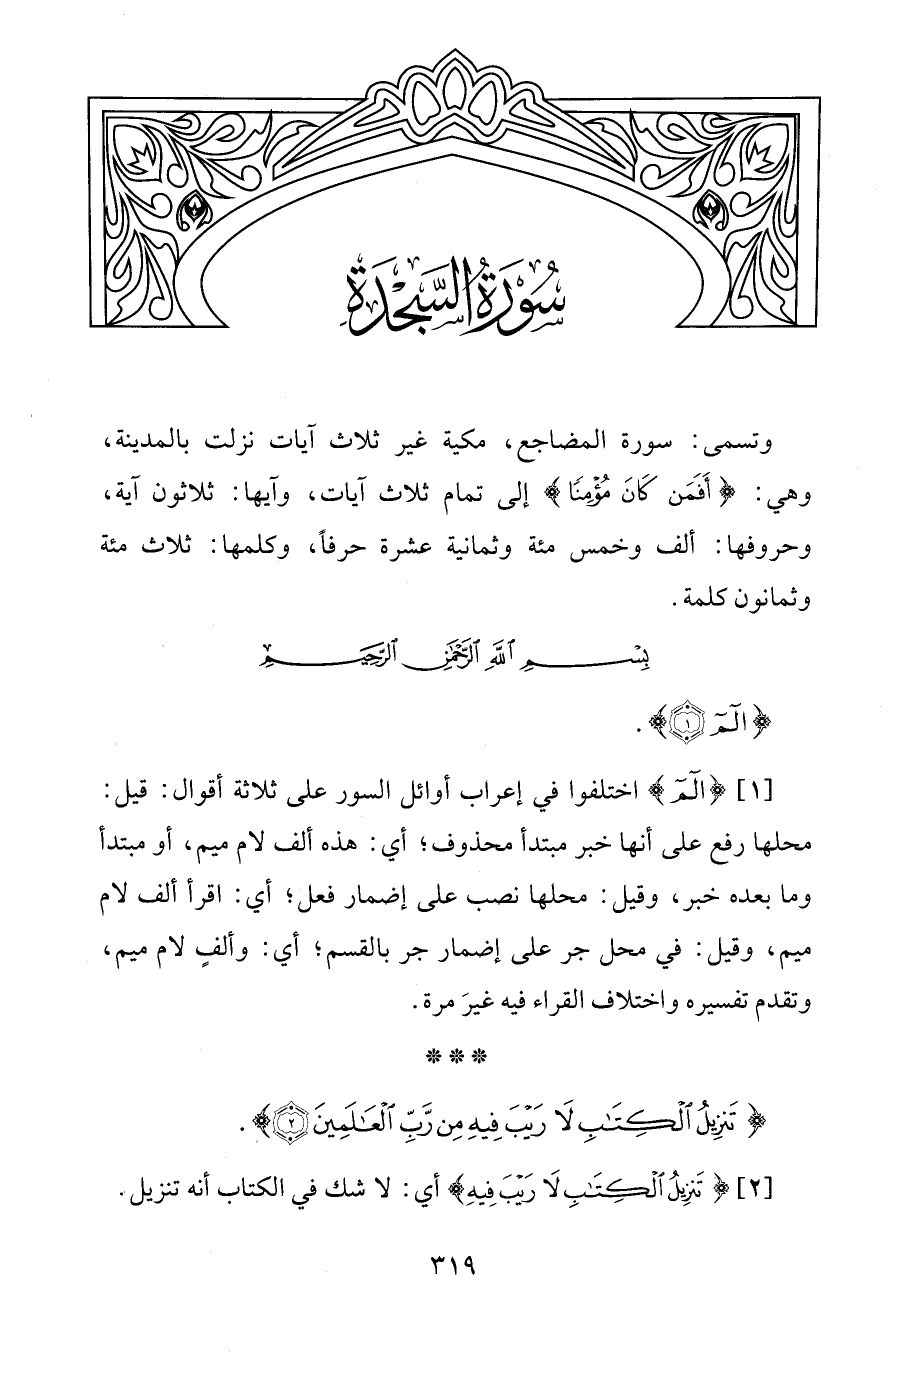 سُورَةُ السَّجْدَةِ
وتسمى: سورة المضاجع، مكية غير ثلاث آيات نزلت بالمدينة،
وهي: ﴿أَفَمَن كَانَ مُؤْمِنًا﴾ إلى تمام ثلاث آيات، وآيها: ثلاثون آية،
وحروفها: ألف وخمس مئة وثمانية عشرة حرفاً، وكلمها: ثلاث مئة
وثمانون كلمة.
بِسْمِ ٱللَّهِ ٱلرَّحْمَٰنِ ٱلرَّحِيمِ
﴿الٓمٓ ١﴾.
[١] ﴿الٓمٓ﴾ اختلفوا في إعراب أوائل السور على ثلاثة أقوال: قيل:
محلها رفع على أنها خبر مبتدأ محذوف؛ أي: هذه ألف لام ميم، أو مبتدأ
وما بعده خبر، وقيل: محلها نصب على إضمار فعل؛ أي: اقرأ ألف لام
ميم، وقيل: في محل جر على إضمار جر بالقسم؛ أي: وألفٍ لام ميم،
وتقدم تفسيره واختلاف القراء فيه غيرَ مرة.
* * *
﴿تَنزِيلُ ٱلْكِتَٰبِ لَا رَيْبَ فِيهِ مِن رَّبِّ ٱلْعَٰلَمِينَ ٢﴾.
[٢] ﴿تَنزِيلُ ٱلْكِتَٰبِ لَا رَيْبَ فِيهِ﴾ أي: لا شك في الكتاب أنه تنزيل.
٣١٩